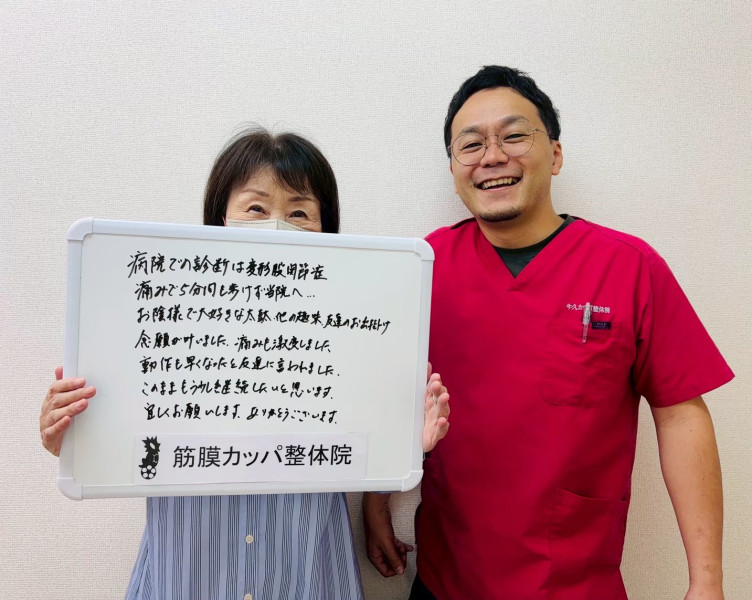 病院での診断は変形股関節症
痛みで5分間も歩けず当院へ…
お陰様で大好きな太鼓、他の趣味、友達のお出掛け
念願が叶いました。痛みも激変しました。
動作も早くなったと友達に言われました。
このままもう少し継続したいと思います。
宜しくお願いします。ありがとうございます。
筋膜カッパ整体院
牛久カッパ整体院